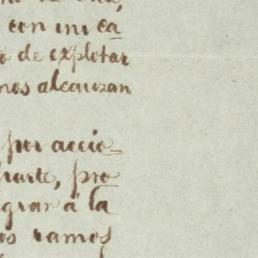 con mi ca
o de explotar
nos alcanzan
por accio-
parte, pro
grar á la
os ramos